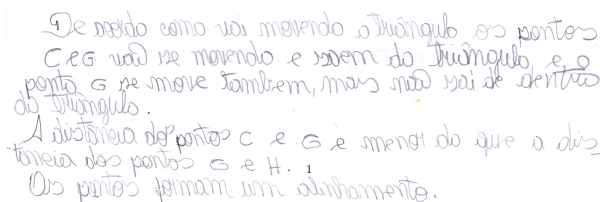 De acordo como vai movendo o triângulo os pontos
C e G vão se movendo e saem do triângulo, e o
ponto G se move tambem, mas não sai de dentro
do triângulo.
A distância dos pontos C e G é menor do que a dis_
tância dos pontos G e H.
Os pontos formam um alinhamento.